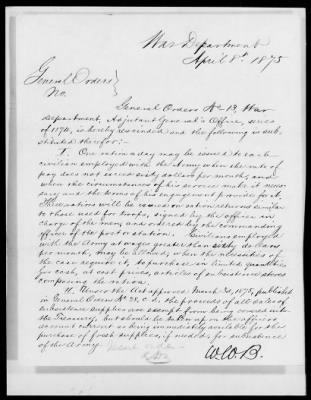 War Department
April 8th 1875
General Orders }
No.
General Orders No 13, War
department, Adjutant General's Office, series
of 1874, is hereby rescinded and the following is sub-
stituted therefor:-
I. One ration a day may be issued to each
civilian employed with the Army when the rate of
pay does not exceed sixty dollars per month, and
when the circumstances of his service make it neces-
sary and the terms of his engagement provide for it.
These rations will be issued on ration returns similar
to those used for troops, signed by the officer in
charge of the men, and ordered by the commanding
officer of the post or station. Civilians employed
with the Army at wages greater than sixty dollars
per month, may be allowed, when the necessities of
the case require it, to purchase in limited quantities
for cash, at cost prices, articles of subsistence stores
composing the ration.
II. Under the Act approved March 3d, 1875, published
in General Orders No 28, c.s., the proceeds of all sales of
subsistence supplies are exempt from being covered into
the Treasury, but should be taken up on the officers
account current as being immediately available for the
purchase of fresh supplies, if needed, for subsistence
of the Army.
W.W.B.